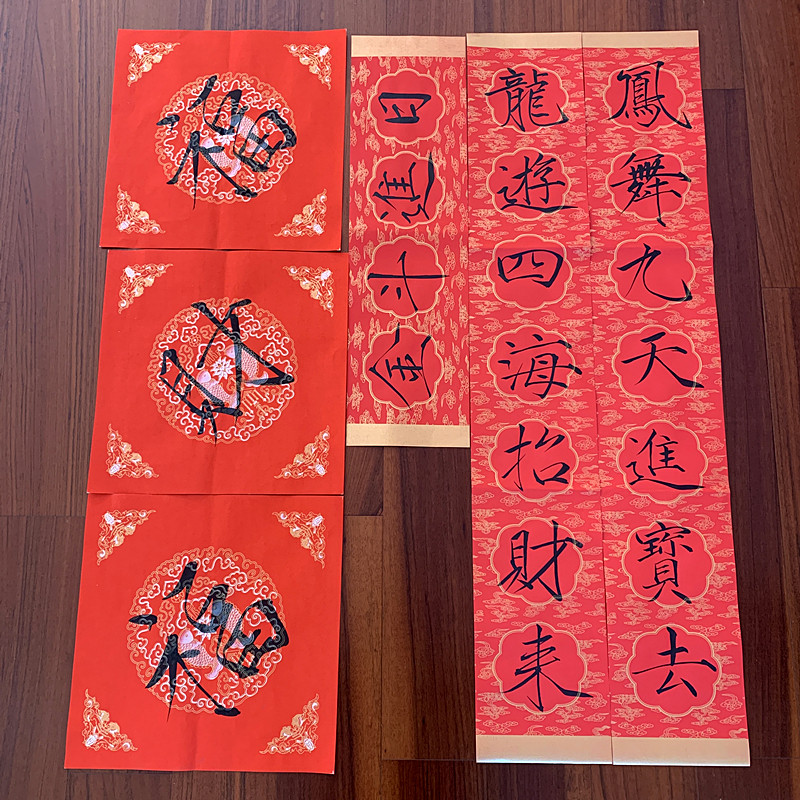 鳳舞九天進寶去
龍遊四海招財来
日進斗金
福
福